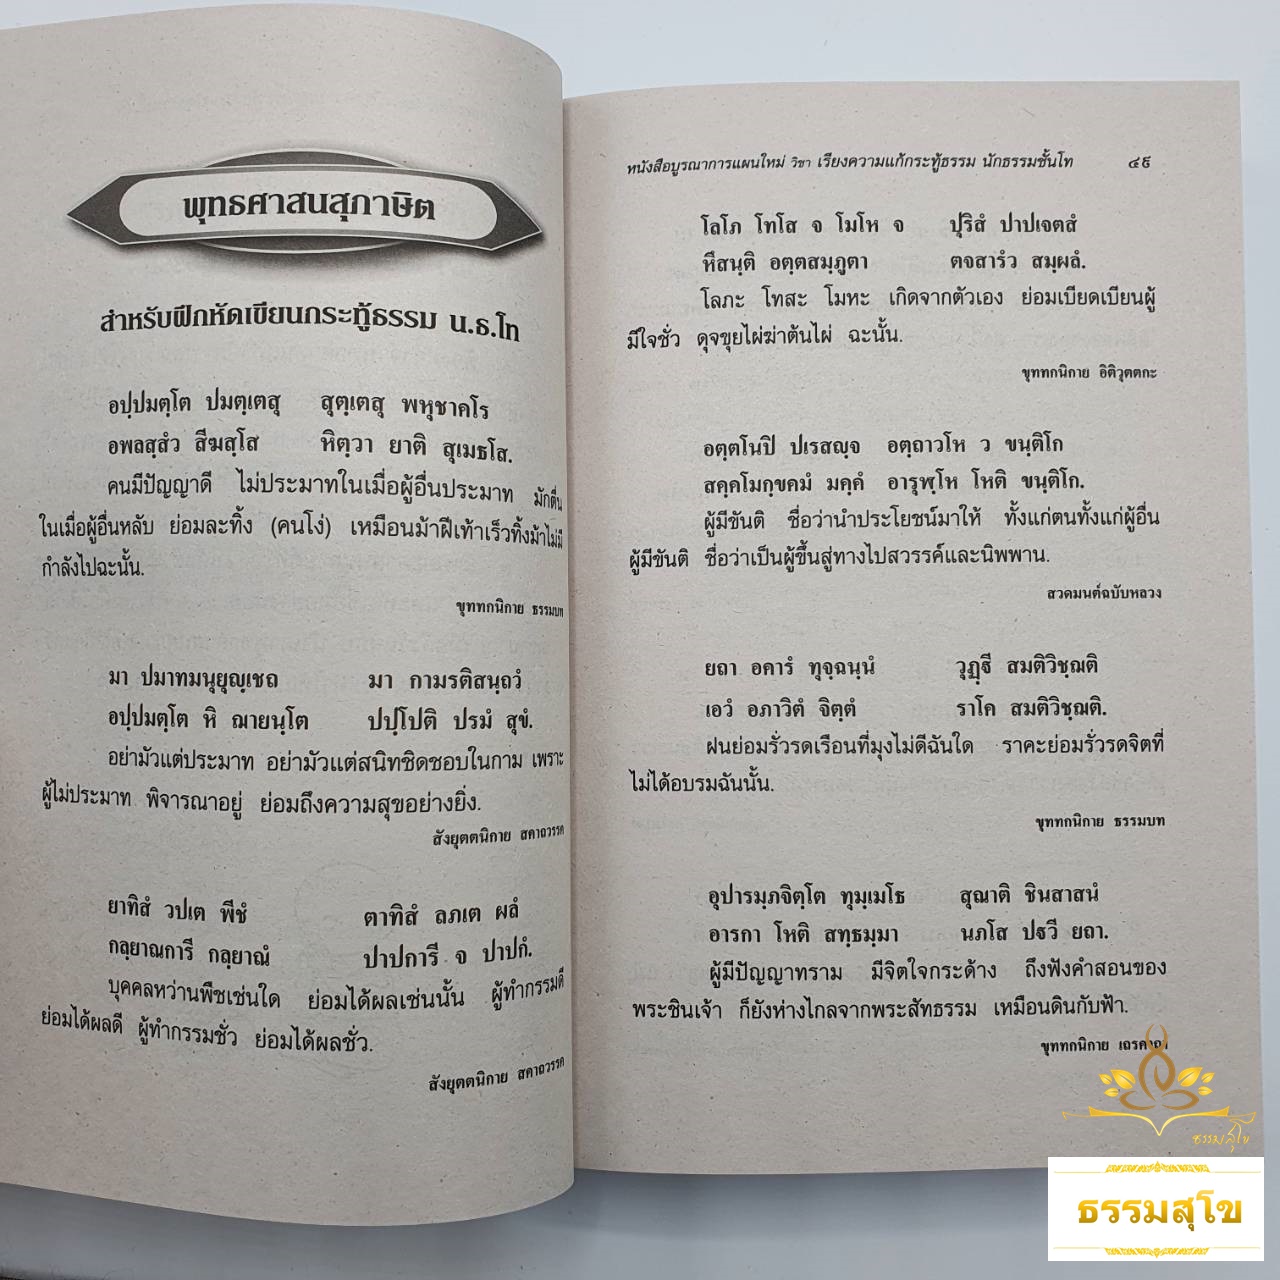 พุทธศาสนสุภาษิต
สำหรับฝึกหัดเขียนกระทู้ธรรม น.ธ.โท
อปฺปมตฺโต ปมตฺเตสุ สุตฺเตสุ พหุชาคโร
อพลสฺสํว สีฆสฺโส หิตฺวา ยาติ สุเมธโส.
คนมีปัญญาดี ไม่ประมาทในเมื่อผู้อื่นประมาท มักตื่น
ในเมื่อผู้อื่นหลับ ย่อมละทิ้ง (คนโง่) เหมือนม้าฝีเท้าเร็วทิ้งม้าไม่มี
กำลังไปฉะนั้น.
ขุททกนิกาย ธรรมบท
มา ปมาทมนุยุญฺเชถ มา กามรติสนฺถวํ
อปฺปมตฺโต หิ ฌายนฺโต ปปฺโปติ ปรมํ สุขํ.
อย่ามัวแต่ประมาท อย่ามัวแต่สนิทชิดชอบในกาม เพราะ
ผู้ไม่ประมาท พิจารณาอยู่ ย่อมถึงความสุขอย่างยิ่ง.
สังยุตตนิกาย สคาถวรรค
ยาทิสํ วปเต พีชํ ตาทิสํ ลภเต ผลํ
กลฺยาณการี กลฺยาณํ ปาปการี จ ปาปกํ.
บุคคลหว่านพืชเช่นใด ย่อมได้ผลเช่นนั้น ผู้ทำกรรมดี
ย่อมได้ผลดี ผู้ทำกรรมชั่ว ย่อมได้ผลชั่ว.
สังยุตตนิกาย สคาถวรรค
หนังสือบูรณาการแผนใหม่ วิชา เรียงความแก้กระทู้ธรรม นักธรรมชั้นโท ๔๙
โลโภ โทโส จ โมโห จ ปุริสํ ปาปเจตสํ
หึสนฺติ อตฺตสมฺภูตา ตจสารํว สมฺผลํ.
โลภะ โทสะ โมหะ เกิดจากตัวเอง ย่อมเบียดเบียนผู้
มีใจชั่ว ดุจขุยไผ่ฆ่าต้นไผ่ ฉะนั้น.
ขุททกนิกาย อิติวุตตกะ
อตฺตโนปิ ปเรสญฺจ อตฺถาวโห ว ขนฺติโก
สคฺคโมกฺขคมํ มคฺคํ อารุฬฺโห โหติ ขนฺติโก.
ผู้มีขันติ ชื่อว่านำประโยชน์มาให้ ทั้งแก่ตนทั้งแก่ผู้อื่น
ผู้มีขันติ ชื่อว่าเป็นผู้ขึ้นสู่ทางไปสวรรค์และนิพพาน.
สวดมนต์ฉบับหลวง
ยถา อคารํ ทุจฺฉนฺนํ วุฏฺฐี สมติวิชฺฌติ
เอวํ อภาวิตํ จิตฺตํ ราโค สมติวิชฺฌติ.
ฝนย่อมรั่วรดเรือนที่มุงไม่ดีฉันใด ราคะย่อมรั่วรดจิตที่
ไม่ได้อบรมฉันนั้น.
ขุททกนิกาย ธรรมบท
อุปารมฺภจิตฺโต ทุมฺเมโธ สุณาติ ชินสาสนํ
อารกา โหติ สทฺธมฺมา นภโส ปฐวี ยถา.
ผู้มีปัญญาทราม มีจิตใจกระด้าง ถึงฟังคำสอนของ
พระชินเจ้า ก็ยังห่างไกลจากพระสัทธรรม เหมือนดินกับฟ้า.
ขุททกนิกาย เถรคาถา
ธรรมสุโข
ธรรมสุโข